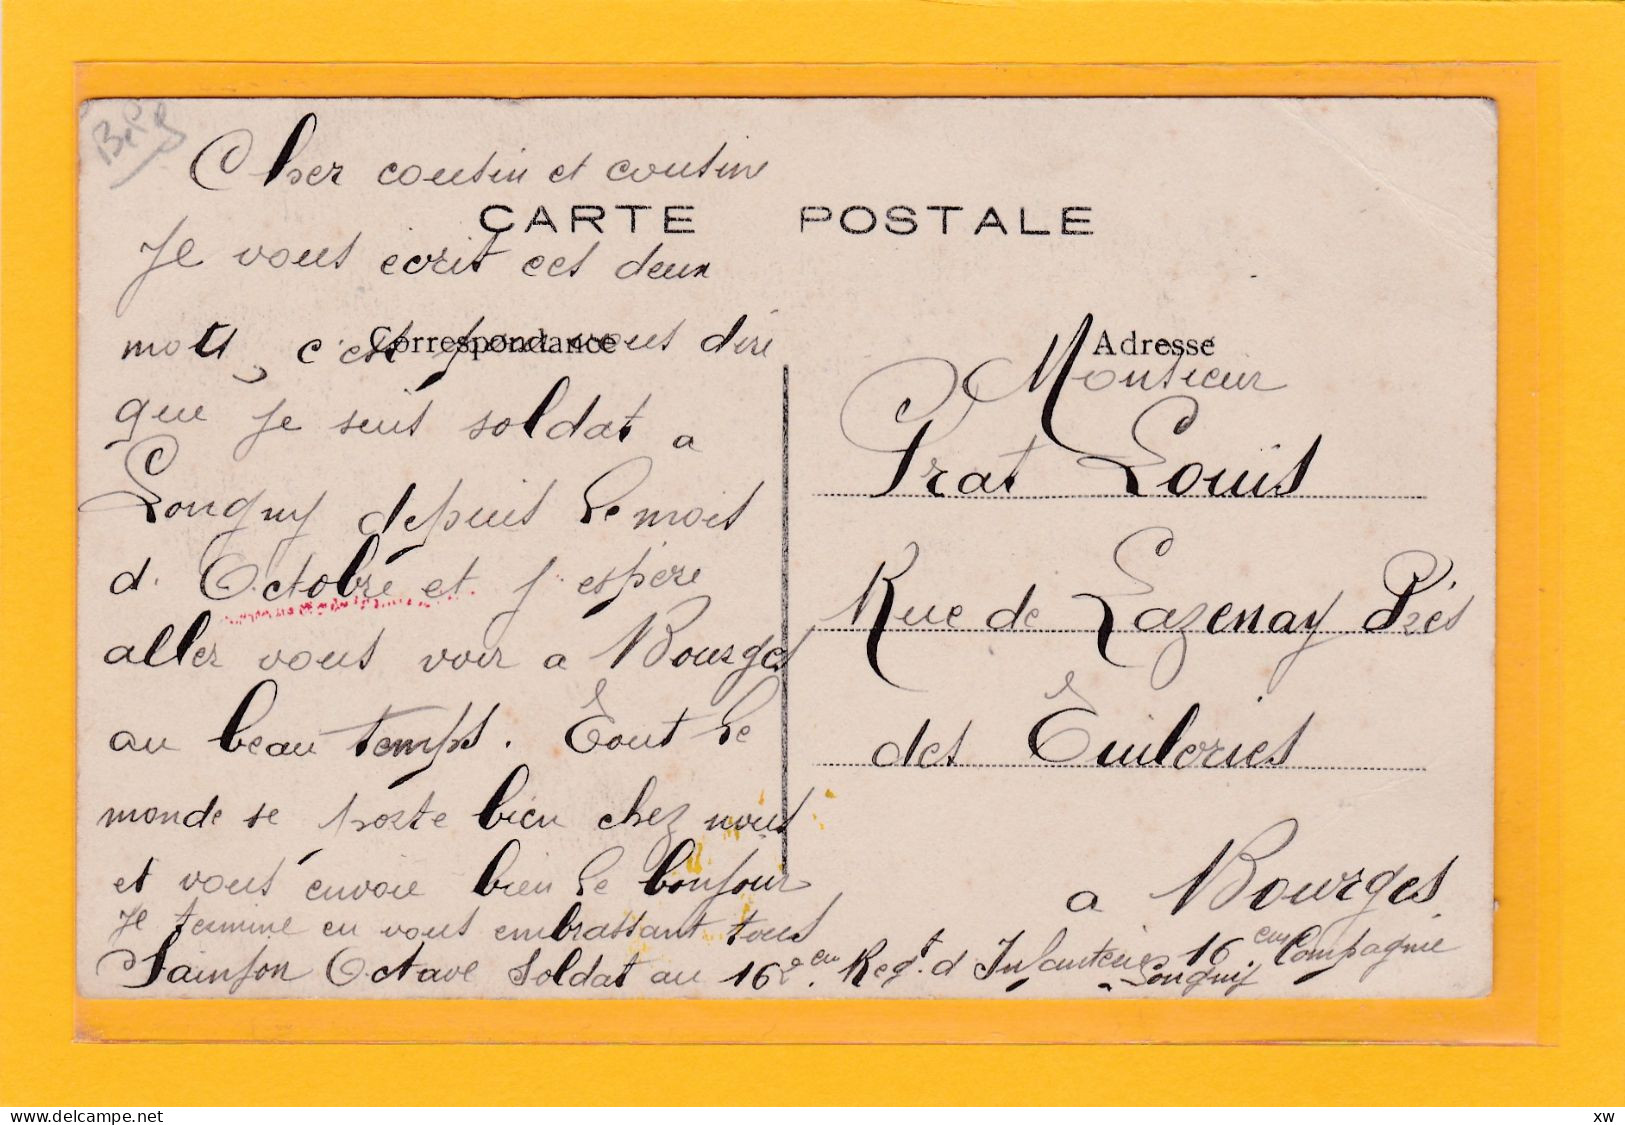 Cher cousin et cousine
CARTE POSTALE
Je vous ecrit ces deux
mots, c'est pour vous dire
Correspondance
que je suis soldat a
Longwy depuis le mois
d. Octobre et j'espère
aller vous voir a Bourges
au beau temps. Tout le
monde se porte bien chez nous
et vous envoie bien le bonjour
Je termine en vous embrassant tous
Octave Soldat au 162e em Regt. d Infanterie 16 em Compagnie
Longwy
Adresse
Monsieur
Prat Louis
Rue de Lazenay Près
des Tuileries
a Bourges
delcampe.net
xw